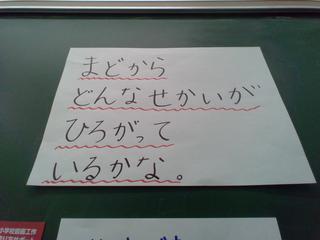 まどから
どんなせかいが
ひろがって
いるかな。
小学校図画工作